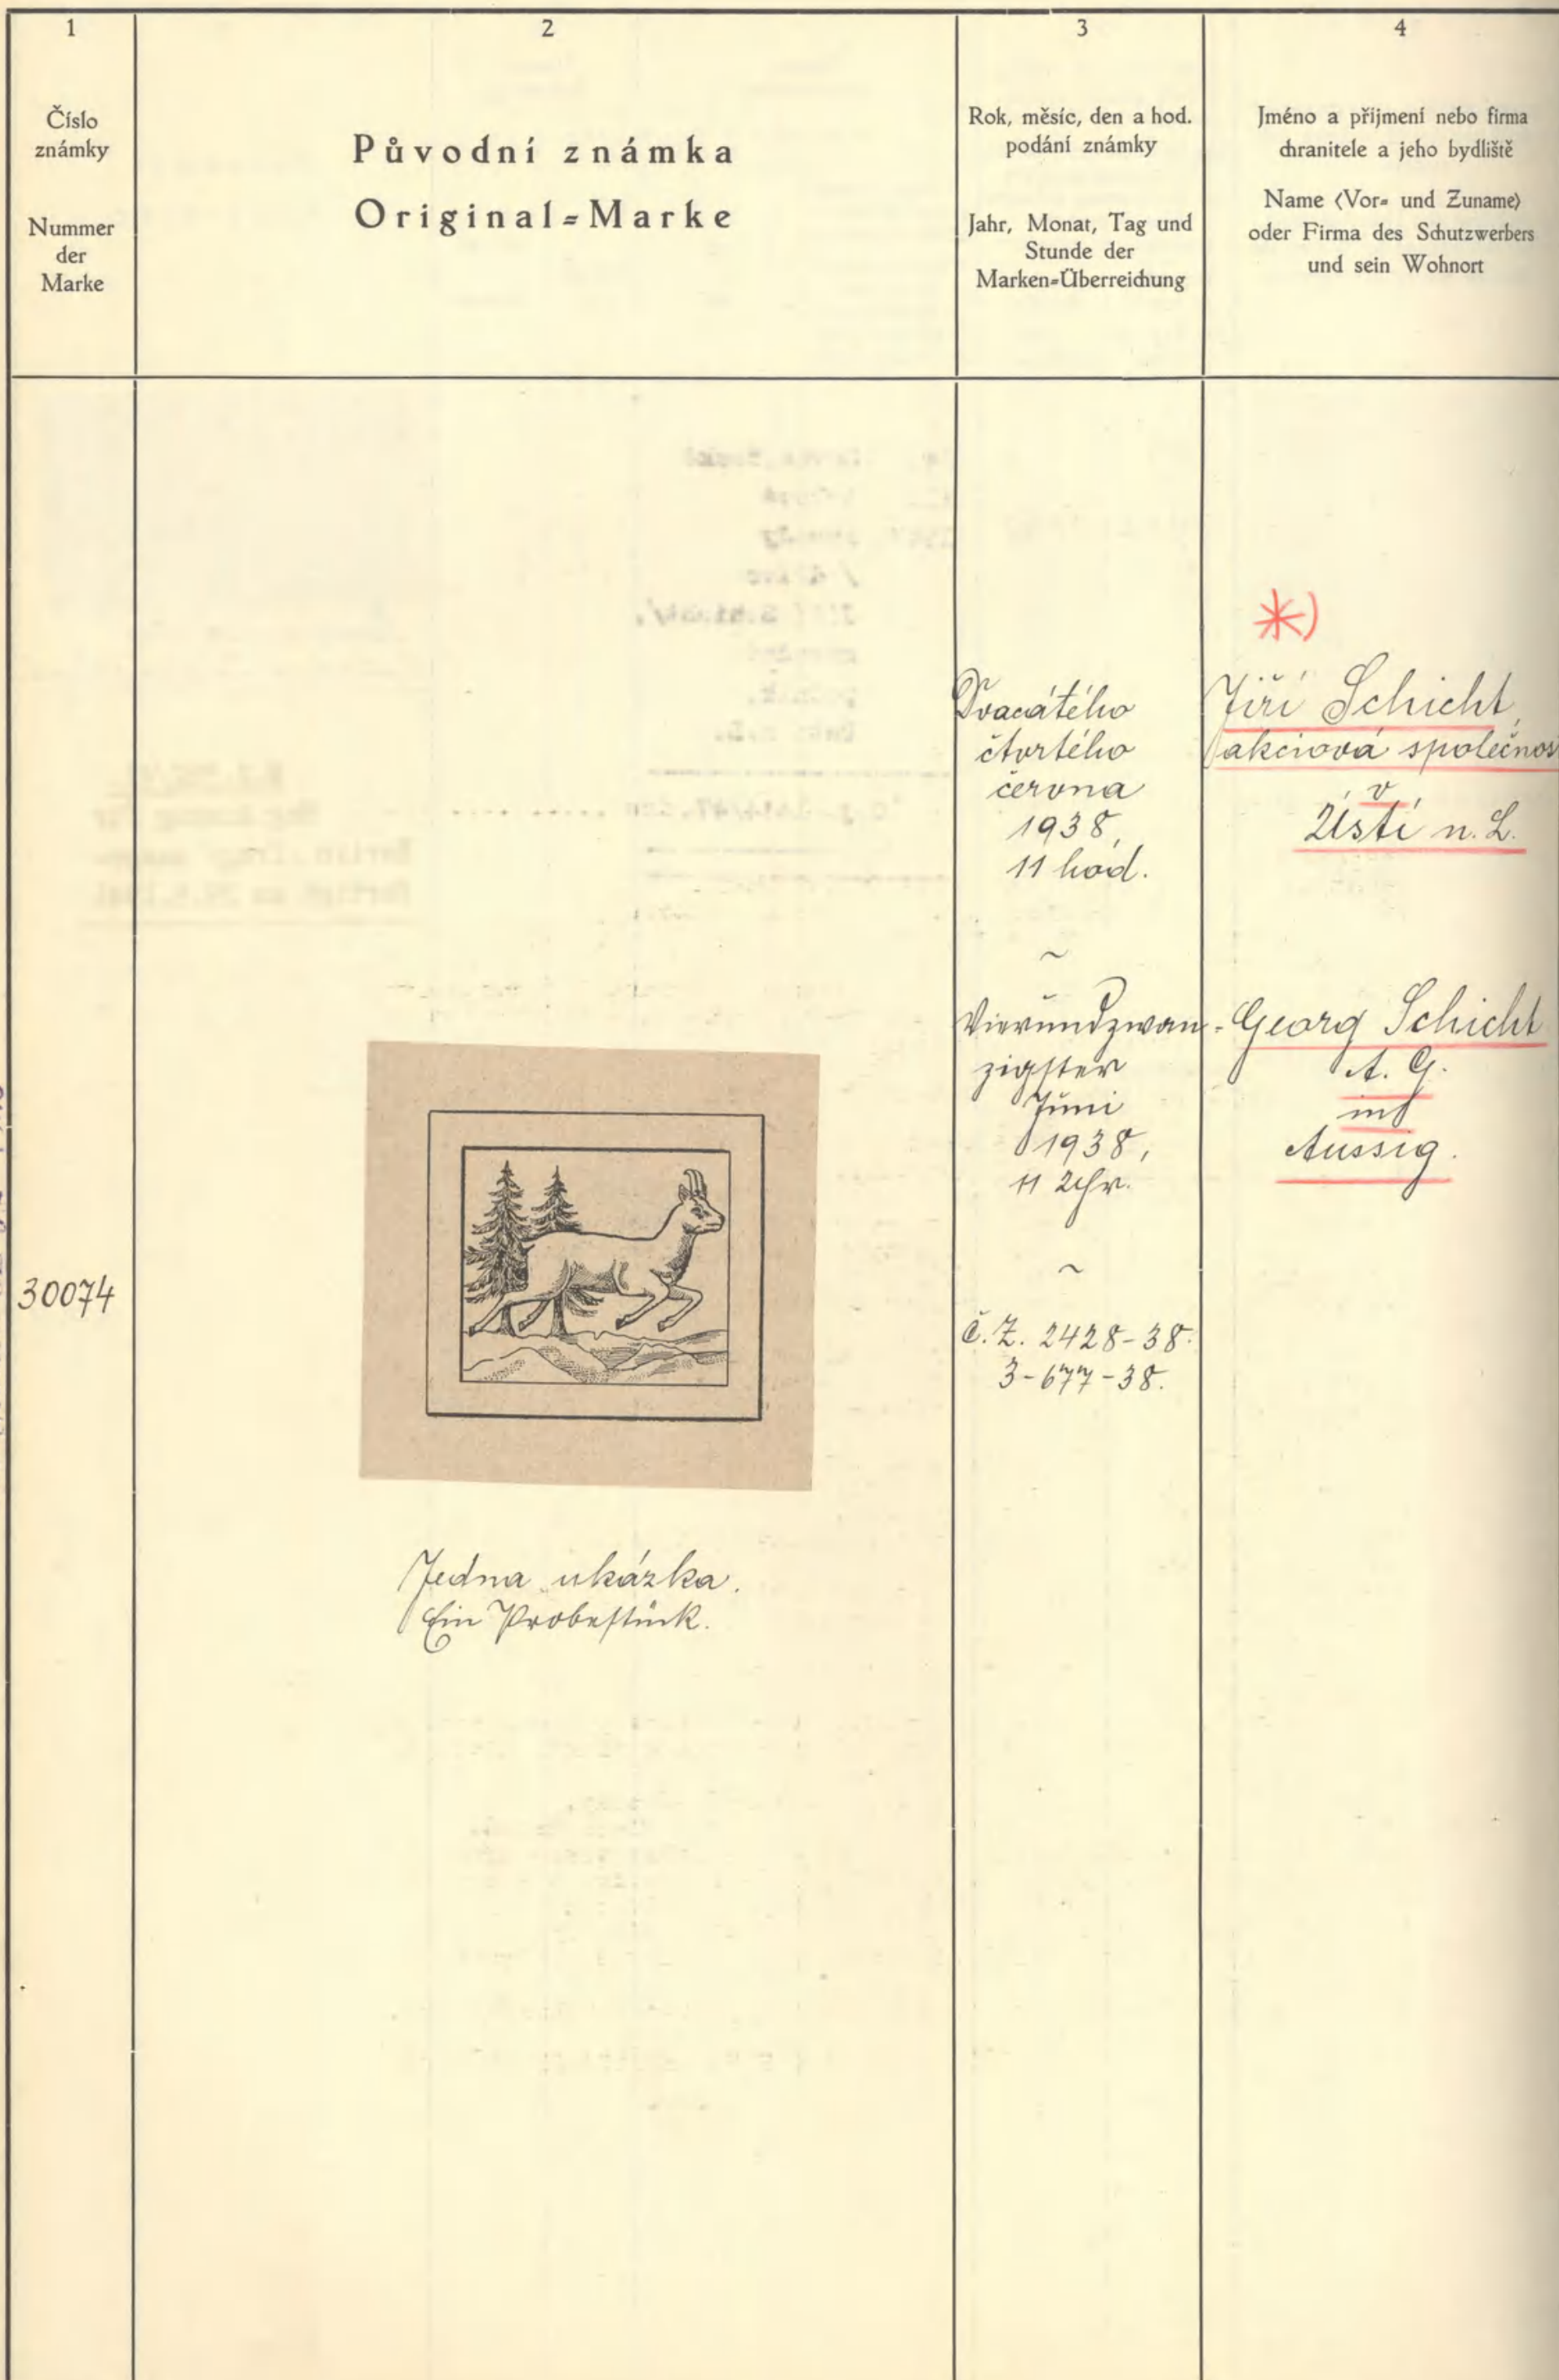 1
2
3
4
Číslo
známky
Nummer
der
Marke
Původní známka
Original=Marke
Rok, měsíc, den a hod.
podání známky
Jahr, Monat, Tag und
Stunde der
Marken=Überreichung
Jméno a příjmení nebo firma
chranitele a jeho bydliště
Name (Vor= und Zuname)
oder Firma des Schutzwerbers
und sein Wohnort
30074
Jedna ukázka.
Ein Probestück.
Dvacátého
čtvrtého
června
1938,
11 hod.
~
Vierundzwan-
zigster
Juni
1938,
11 Uhr.
~
č.Z. 2428-38.
3-677-38.
*)
Jiří Schicht,
akciová společnos
v
Ústí n. L.
Georg Schicht
A. G.
in
Aussig.